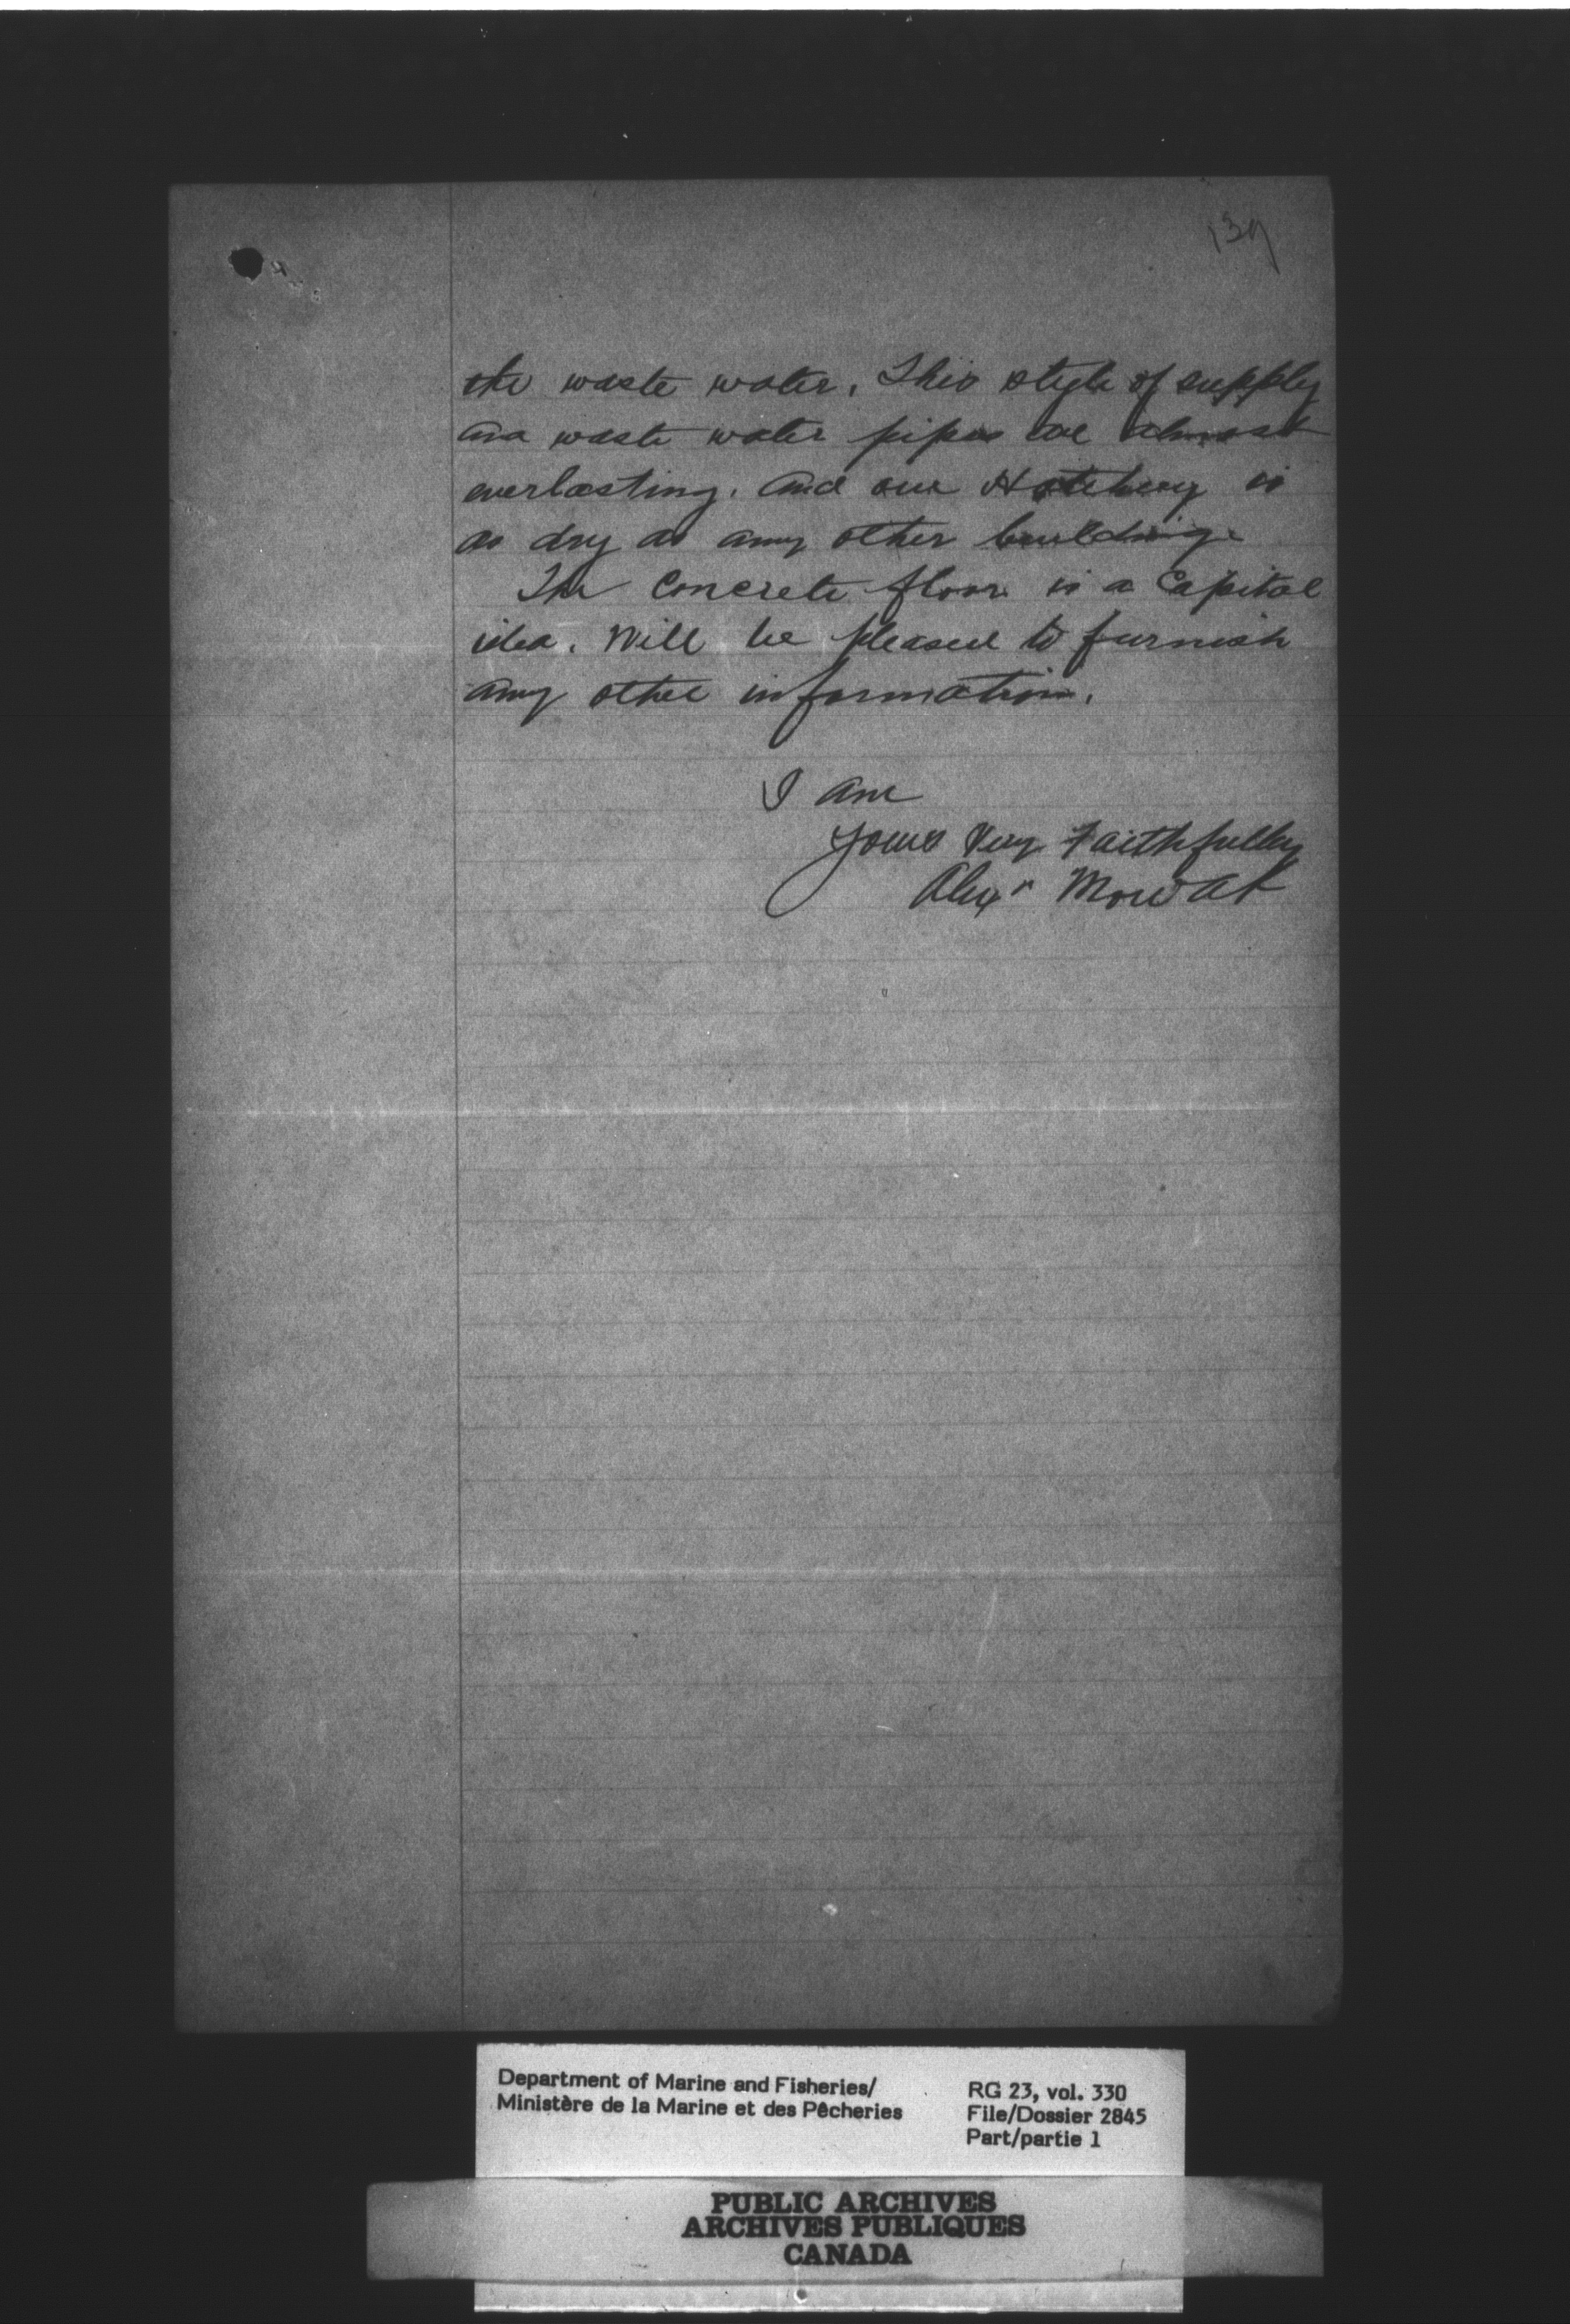 139
the waste water. This style of supply
and waste water pipes are almost
everlasting. And our Hatchery is
as dry as any other building.
The Concrete floor is a Capital
idea. Will be pleased to furnish
any other information.
I am
Yours Very Faithfully
Alexr Mowat
Department of Marine and Fisheries/
Ministère de la Marine et des Pêcheries
RG 23, vol. 330
File/Dossier 2845
Part/partie 1
PUBLIC ARCHIVES
ARCHIVES PUBLIQUES
CANADA